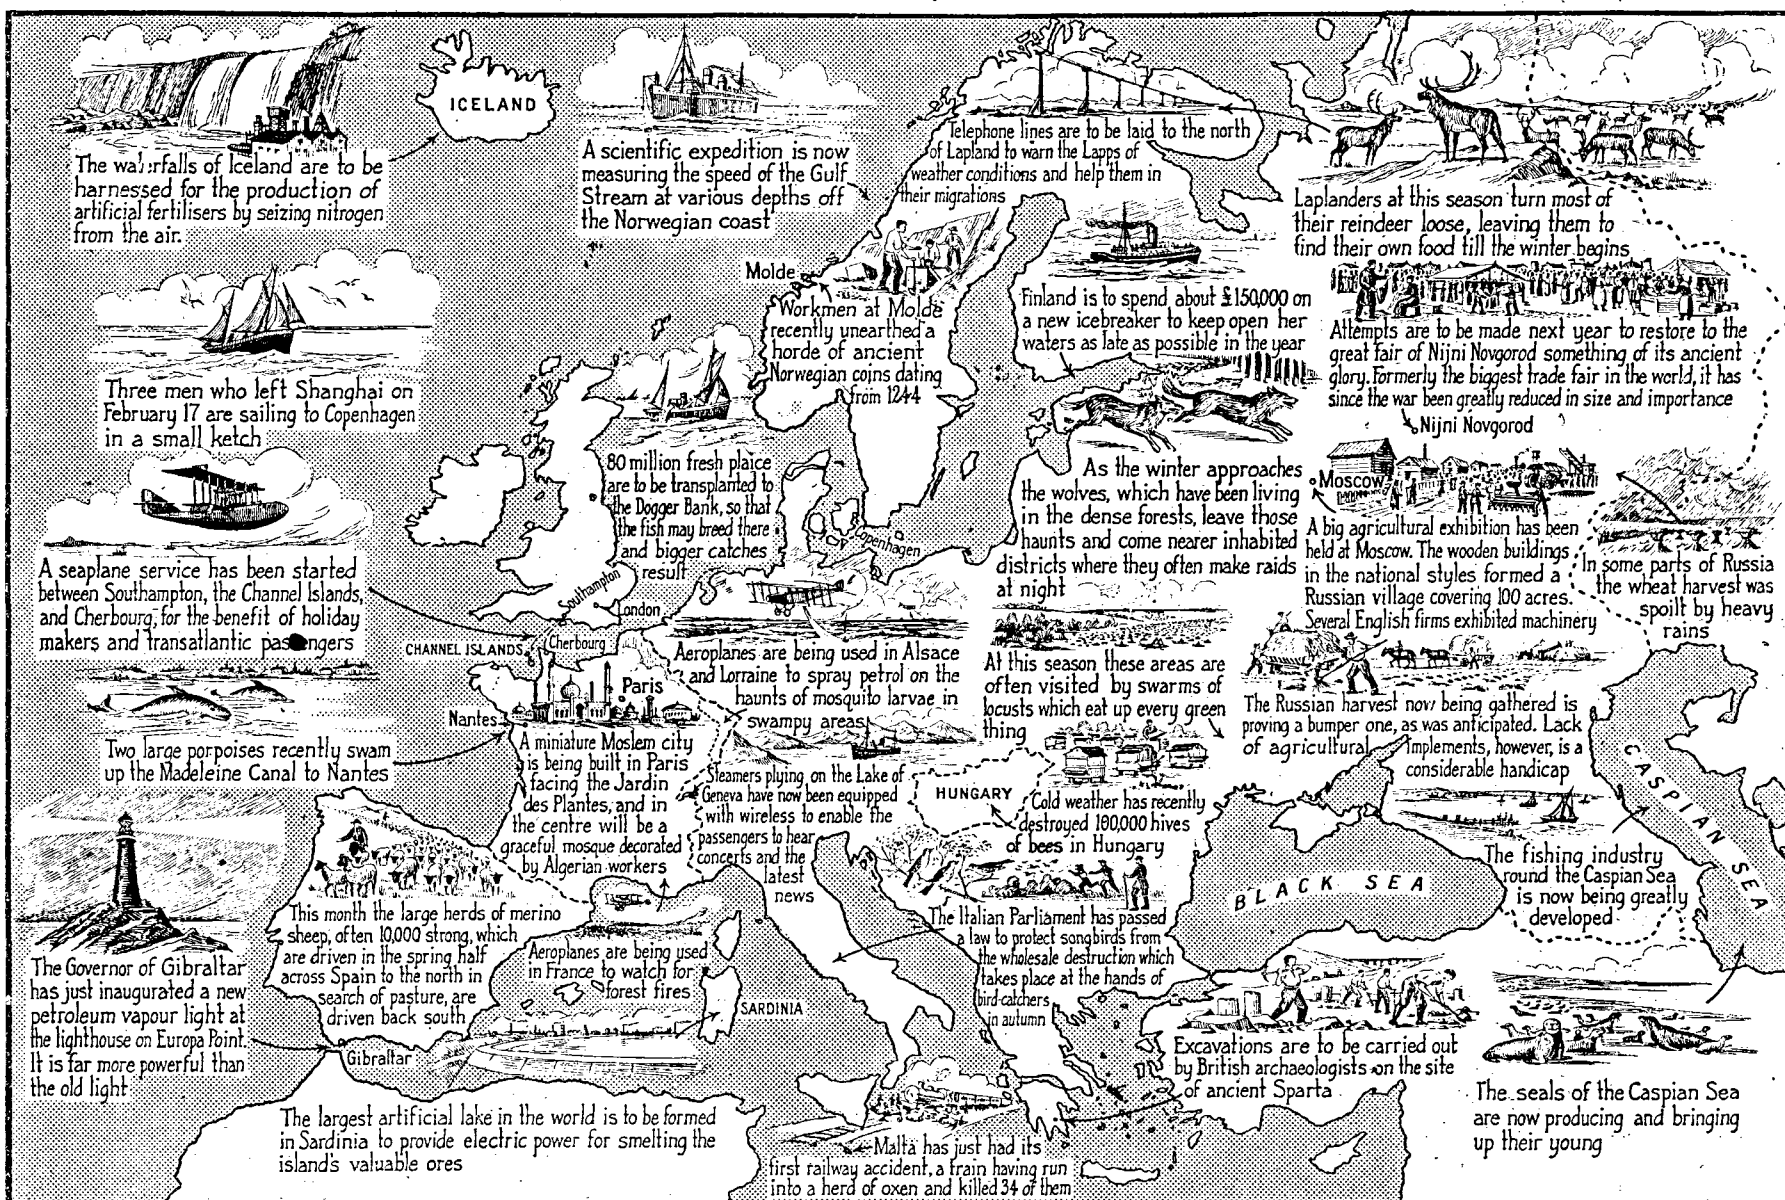 ICELAND
The waterfalls of Iceland are to be
harnessed for the production of
artificial fertilisers by seizing nitrogen
from the air.
A scientific expedition is now
measuring the speed of the Gulf
Stream at various depths off
the Norwegian coast
Telephone lines are to be laid to the north
of Lapland to warn the Lapps of
weather conditions and help them in
their migrations
Laplanders at this season turn most of
their reindeer loose, leaving them to
find their own food till the winter begins
Three men who left Shanghai on
February 17 are sailing to Copenhagen
in a small ketch
Molde
Workmen at Molde
recently unearthed a
horde of ancient
Norwegian coins dating
from 1244
Finland is to spend about £150,000 on
a new icebreaker to keep open her
waters as late as possible in the year
Attempts are to be made next year to restore to the
great fair of Nijni Novgorod something of its ancient
glory. Formerly the biggest trade fair in the world, it has
since the war been greatly reduced in size and importance
Nijni Novgorod
80 million fresh plaice
are to be transplanted to
the Dogger Bank, so that
the fish may breed there
and bigger catches
result
Copenhagen
As the winter approaches
the wolves, which have been living
in the dense forests, leave those
haunts and come nearer inhabited
districts where they often make raids
at night
Moscow
A big agricultural exhibition has been
held at Moscow. The wooden buildings
in the national styles formed a
Russian village covering 100 acres.
Several English firms exhibited machinery
In some parts of Russia
the wheat harvest was
spoilt by heavy
rains
A seaplane service has been started
between Southampton, the Channel Islands,
and Cherbourg, for the benefit of holiday
makers and transatlantic passengers
Southampton
London
CHANNEL ISLANDS
Cherbourg
Paris
Nantes
Aeroplanes are being used in Alsace
and Lorraine to spray petrol on the
haunts of mosquito larvae in
swampy areas
At this season these areas are
often visited by swarms of
locusts which eat up every green
thing
The Russian harvest now being gathered is
proving a bumper one, as was anticipated. Lack
of agricultural implements, however, is a
considerable handicap
Two large porpoises recently swam
up the Madeleine Canal to Nantes
A miniature Moslem city
is being built in Paris
facing the Jardin
des Plantes, and in
the centre will be a
graceful mosque decorated
by Algerian workers
Steamers plying on the Lake of
Geneva have now been equipped
with wireless to enable the
passengers to hear
concerts and the
latest
news
HUNGARY
Cold weather has recently
destroyed 180,000 hives
of bees in Hungary
CASPIAN SEA
BLACK SEA
The fishing industry
round the Caspian Sea
is now being greatly
developed
The Governor of Gibraltar
has just inaugurated a new
petroleum vapour light at
the lighthouse on Europa Point.
It is far more powerful than
the old light
This month the large herds of merino
sheep, often 10,000 strong, which
are driven in the spring half
across Spain to the north in
search of pasture, are
driven back south
Gibraltar
Aeroplanes are being used
in France to watch for
forest fires
SARDINIA
The Italian Parliament has passed
a law to protect songbirds from
the wholesale destruction which
takes place at the hands of
bird-catchers
in autumn
Excavations are to be carried out
by British archaeologists on the site
of ancient Sparta
The seals of the Caspian Sea
are now producing and bringing
up their young
The largest artificial lake in the world is to be formed
in Sardinia to provide electric power for smelting the
island's valuable ores
Malta has just had its
first railway accident, a train having run
into a herd of oxen and killed 34 of them